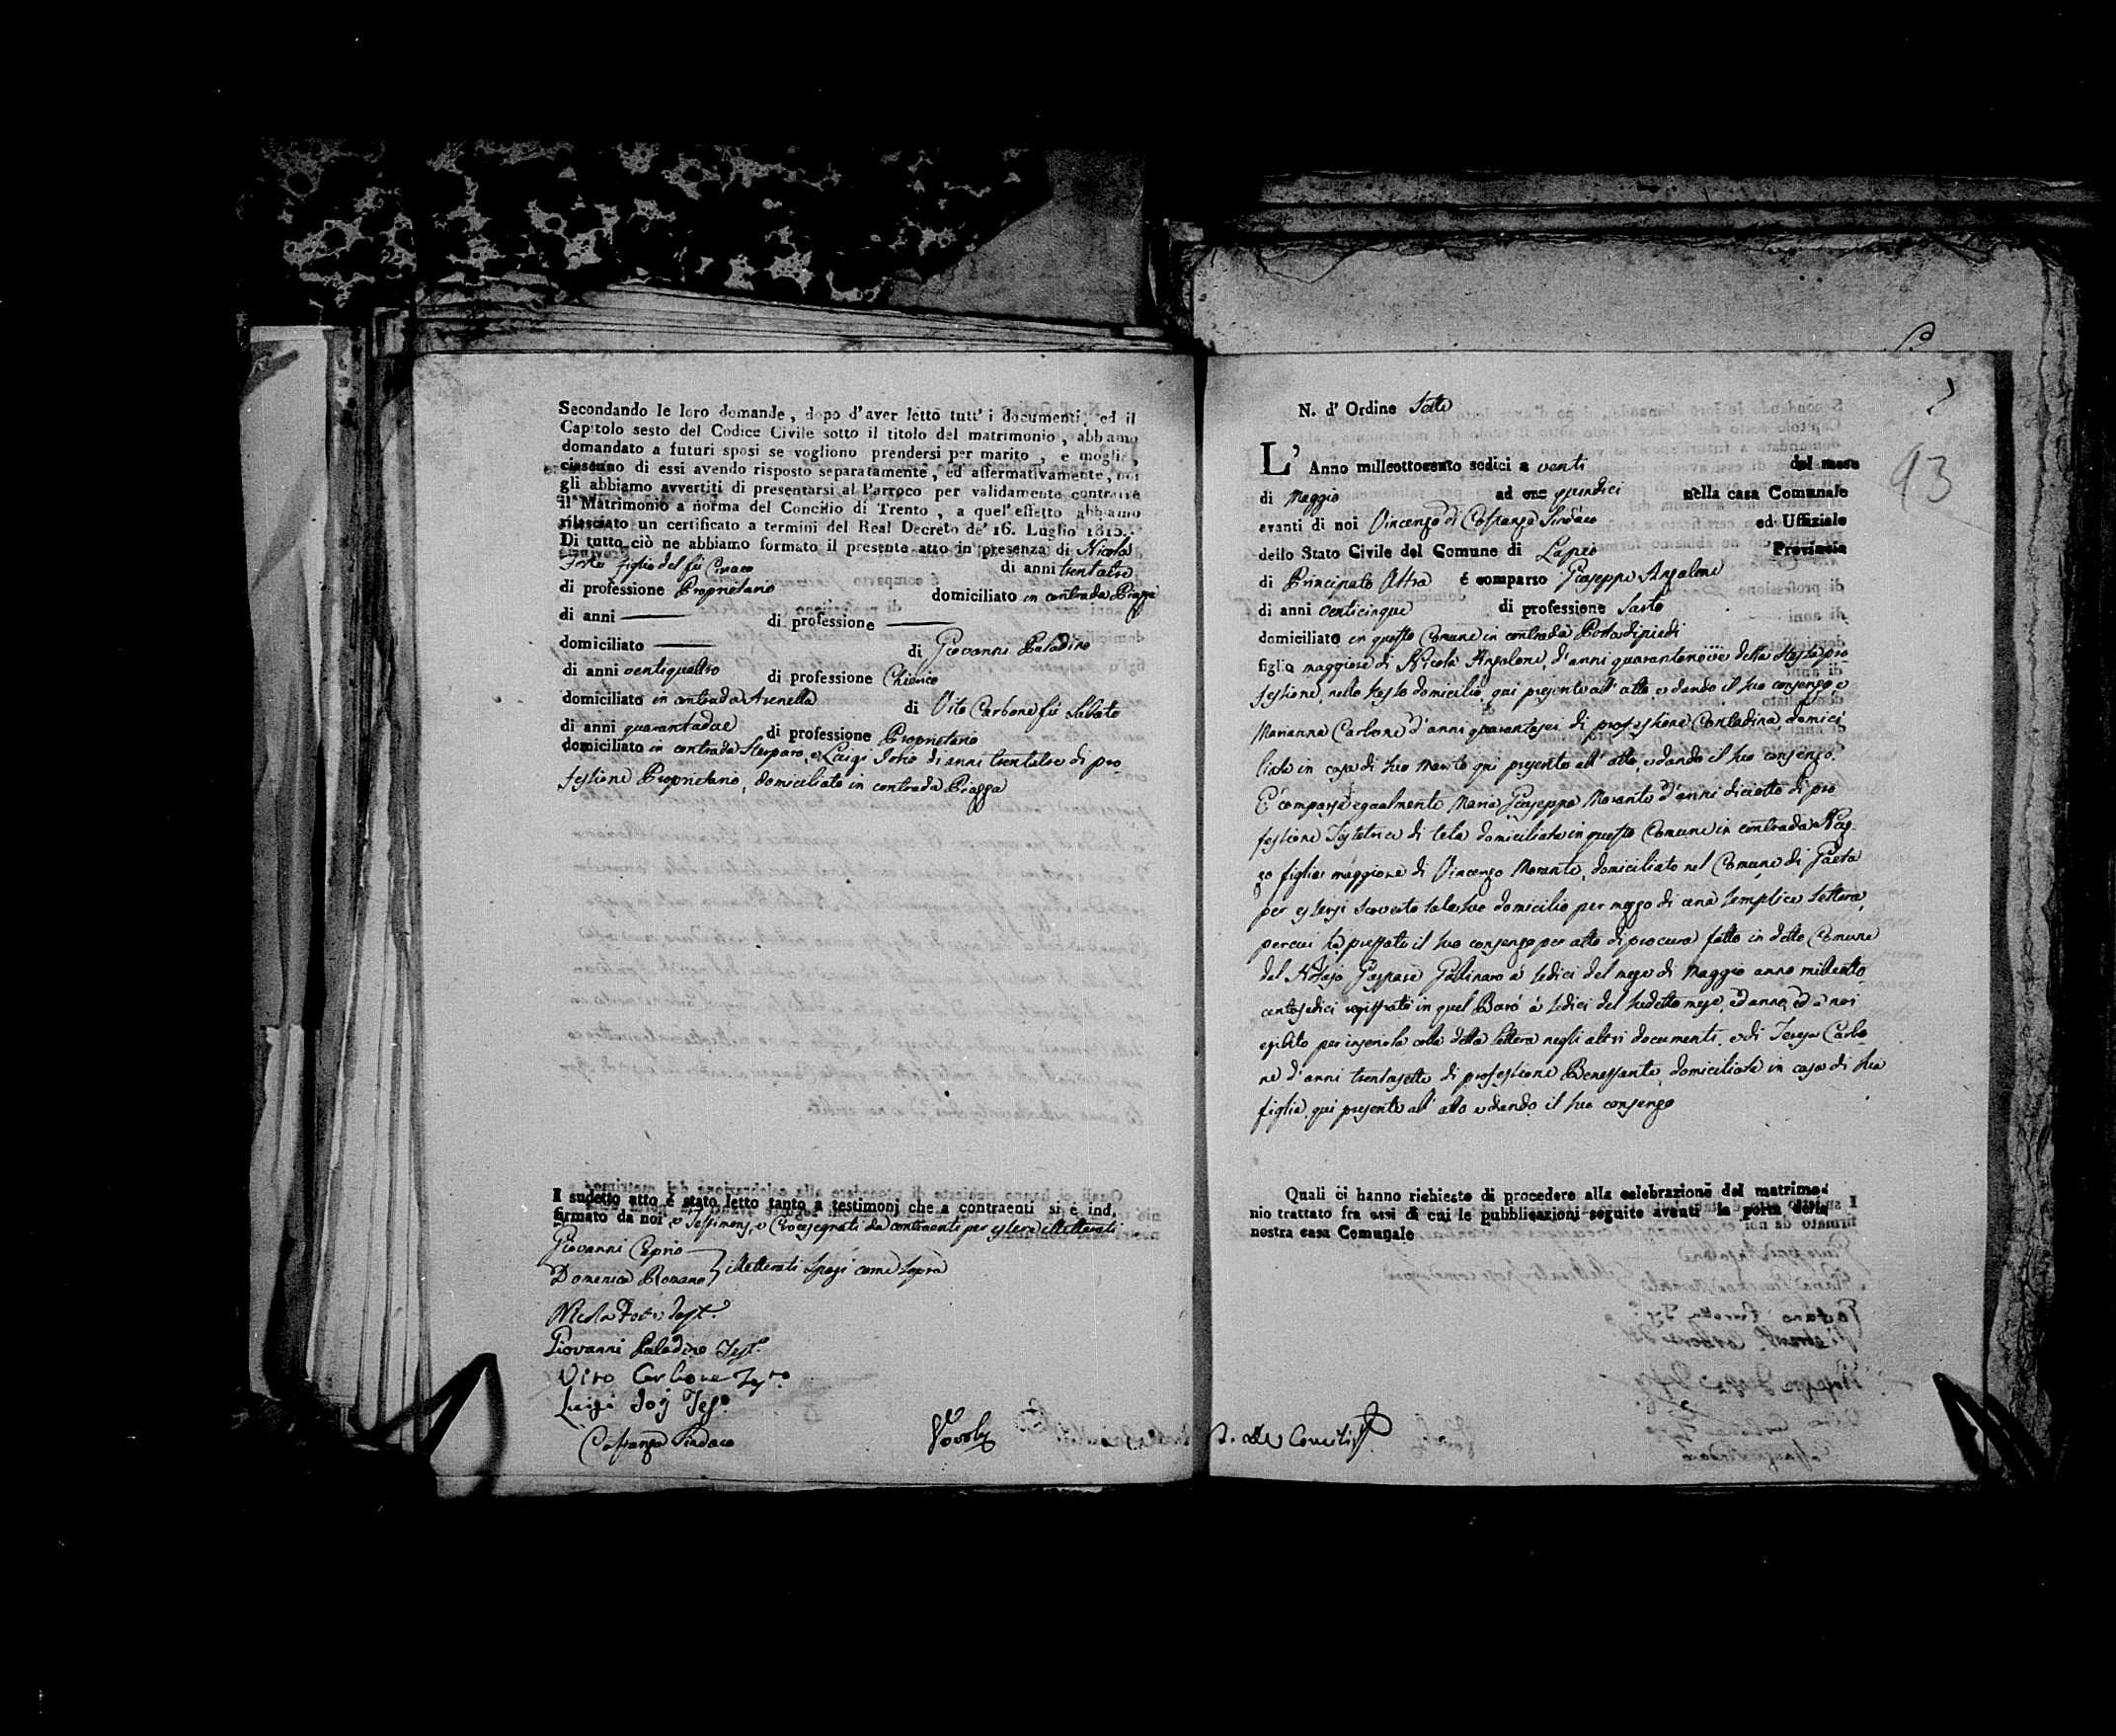 Secondando le loro domande, dopo d'aver letto tutt'i documenti, ed il
Capitolo sesto del Codice Civile sotto il titolo del matrimonio, abbiamo
domandato a futuri sposi se vogliono prendersi per marito, e moglie,
ciascuno di essi avendo risposto separatamente, ed affermativamente, noi
gli abbiamo avvertiti di presentarsi al Parroco per validamente contrarre
il Matrimonio a norma del Concilio di Trento, a quel'effetto abbiamo
rilasciato un certificato a termini del Real Decreto de' 16. Luglio 1815.
Di tutto ciò ne abbiamo formato il presente atto in presenza di Nicola
figlio del fù di anni trentatre
di professione Proprietario domiciliato in contrada Piazza
di anni — di professione —
domiciliato — di Giovanni Paladino
di anni ventiquattro di professione Chierico
domiciliato in contrada Arenella di Vito Carbone fù Sabato
di anni quarantadue di professione Proprietario
domiciliato in contrada Sterparo, e Luigi di anni trentatre di pro
fessione Proprietario, domiciliato in contrada Piazza
I sudetto atto é stato letto tanto a testimonj che a contraenti si é ind.
firmato da noi e Testimonj, e Crocesegnati da contraenti per essere illetterati
Giovanni Caprio
Domenica Romano illetterati Sposi come sopra
Giovanni Paladino Test.º
Vito Carbone
Luigi
Costanza Sindaco
N. d' Ordine Sette
L' Anno milleottocento sedici a venti del mese
di Maggio ad ore quindici nella casa Comunale
avanti di noi Vincenzo di Costanza Sindaco ed Uffiziale
dello Stato Civile del Comune di Lapio Provincia
di Principato Ultra é comparso Giuseppe Anzalone
di anni venticinque di professione Sarto
domiciliato in questo Comune in contrada Porta di piedi
figlio maggiore di Nicola Anzalone, d'anni quarantanove della stessa pro
fessione, nello stesso domicilio, qui presente all'atto, e dando il suo consenzo e
Marianna Carbone d'anni quarantasei di professione Contadina domici
liata in casa di suo Marito qui presente all'atto, e dando il suo consenzo.
E' comparsa egualmente Maria Giuseppa Morante d'anni diciotto di pro
fessione Tessitrice di tela domiciliata in questo Comune in contrada
figlia maggiore di Vincenzo Morante, domiciliato nel Comune di Gaeta
per essersi scoverto tal suo domicilio per mezzo di una semplice lettera,
percui ha prestato il suo consenzo per atto di procura fatto in detto Comune
dal Notajo Gaspare Gallinaro a' sedici del mese di Maggio anno milleotto
centosedici registrato in quel Burò a' sedici del sudetto mese, ed anno, ed a noi
esibito per inserirla colla detta lettera negli altri documenti, e di Teresa Carbo
ne d'anni trentasette di professione Benestante, domiciliata in casa di sua
figlia, qui presente all'atto e dando il suo consenzo
Quali ci hanno richiesto di procedere alla celebrazione del matrimo
nio trattato fra essi di cui le pubblicazioni seguite avanti la porta della
nostra casa Comunale
93